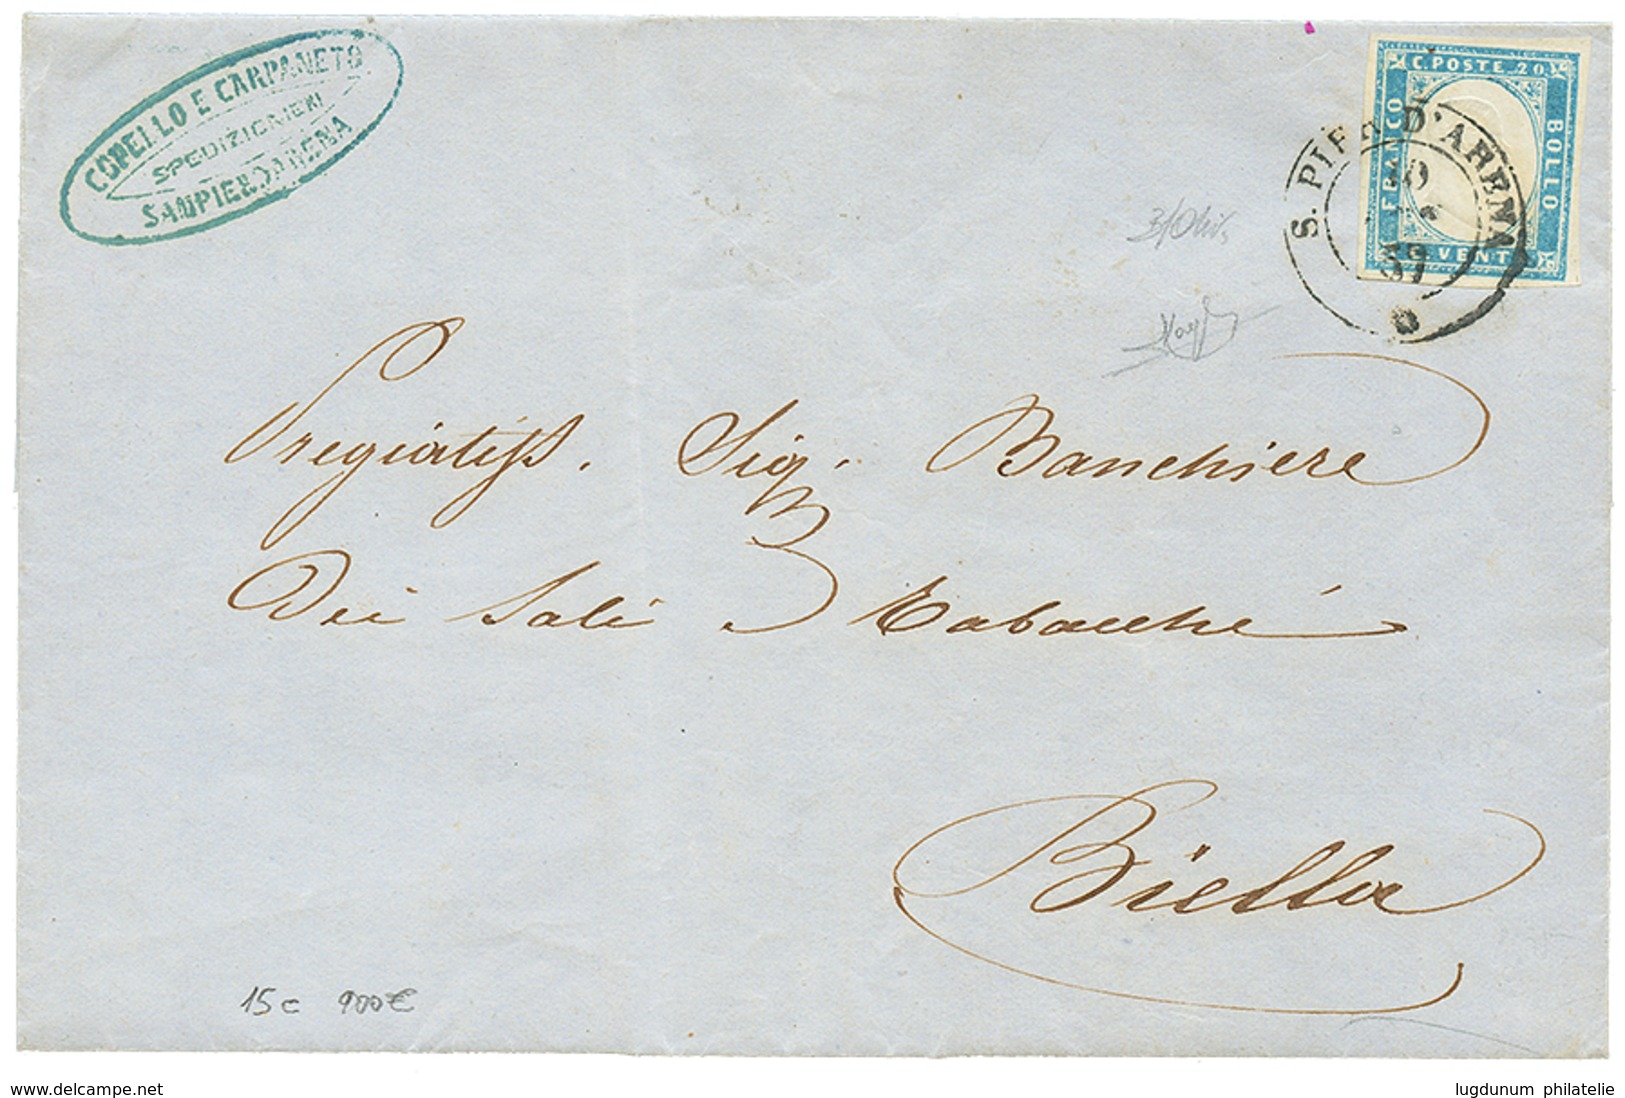 COPELLO E CARPANETO
SPEDIZIONIERI
SAMPIERDARENA
C. POSTE 20
FRANCO
BOLLO
C. VENTI
S. PIER D'ARENA
10
59
Pregiatiss. Sig. Banchiere
Dei Sali e Tabacchi
Biella
15c 900€
www.delcampe.net
lugdunum philatelie